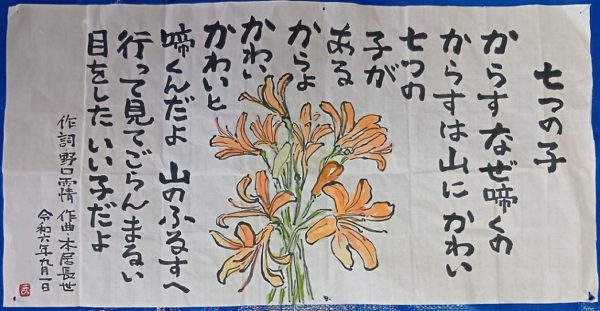 七つの子
からすなぜ啼くの
からすは山にかわい
七つの
子が
ある
からよ
かわい
かわいと
啼くんだよ 山のふるすへ
行って見てごらんまるい
目をしたいい子だよ
作詞・野口雨情 作曲・本居長世
令和六年九月一日